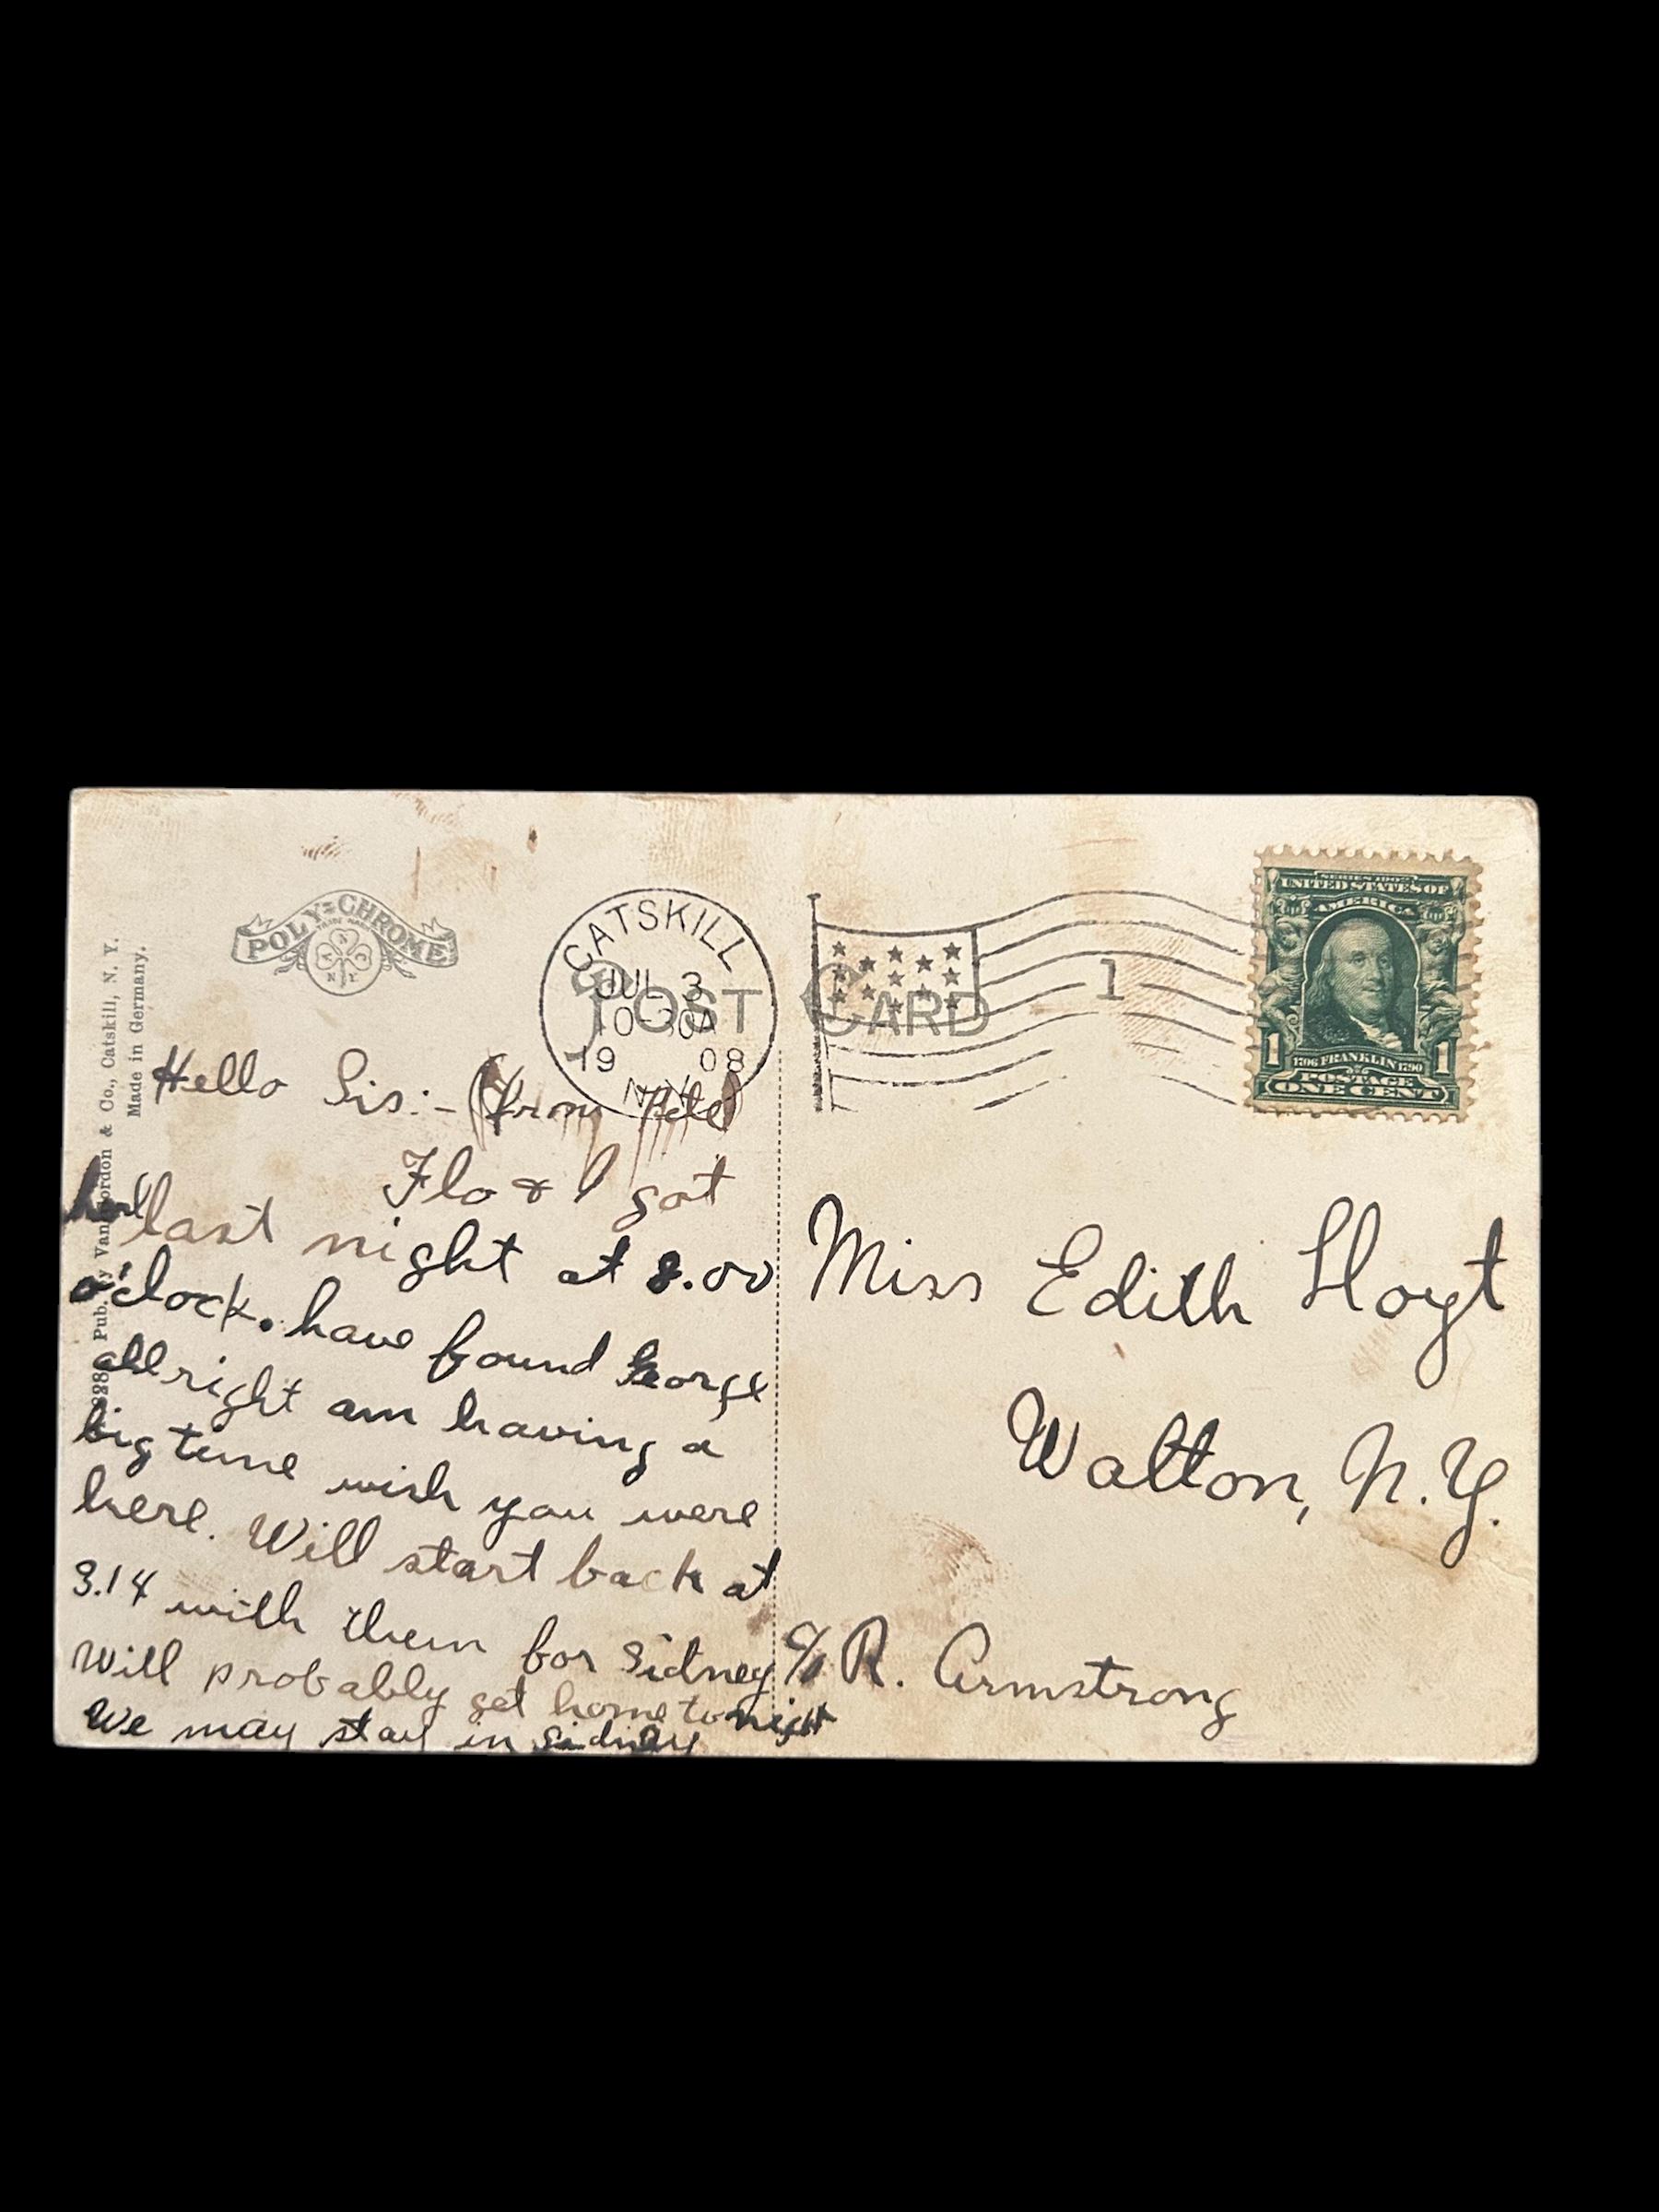 POLY-CHROME
TRADE MARK
A
N
A
C
N
Y
Pub. by Van Gordon & Co., Catskill, N. Y.
Made in Germany.
POST CARD
CATSKILL
JUL 3
10-30A
1908
N.Y.
1
SERIES 1902
UNITED STATES OF
AMERICA
1 1706 FRANKLIN 1790 1
POSTAGE
ONE CENT
Hello Sis:- (from Pete)
Flo & I got
here last night at 8.00
o'clock. have found George
all right am having a
big time wish you were
here. Will start back at
3.14 with them for Sidney
Will probably get home tonight
We may stay in Sidney
Miss Edith Hoyt
Walton, N.Y.
c/o R. Armstrong